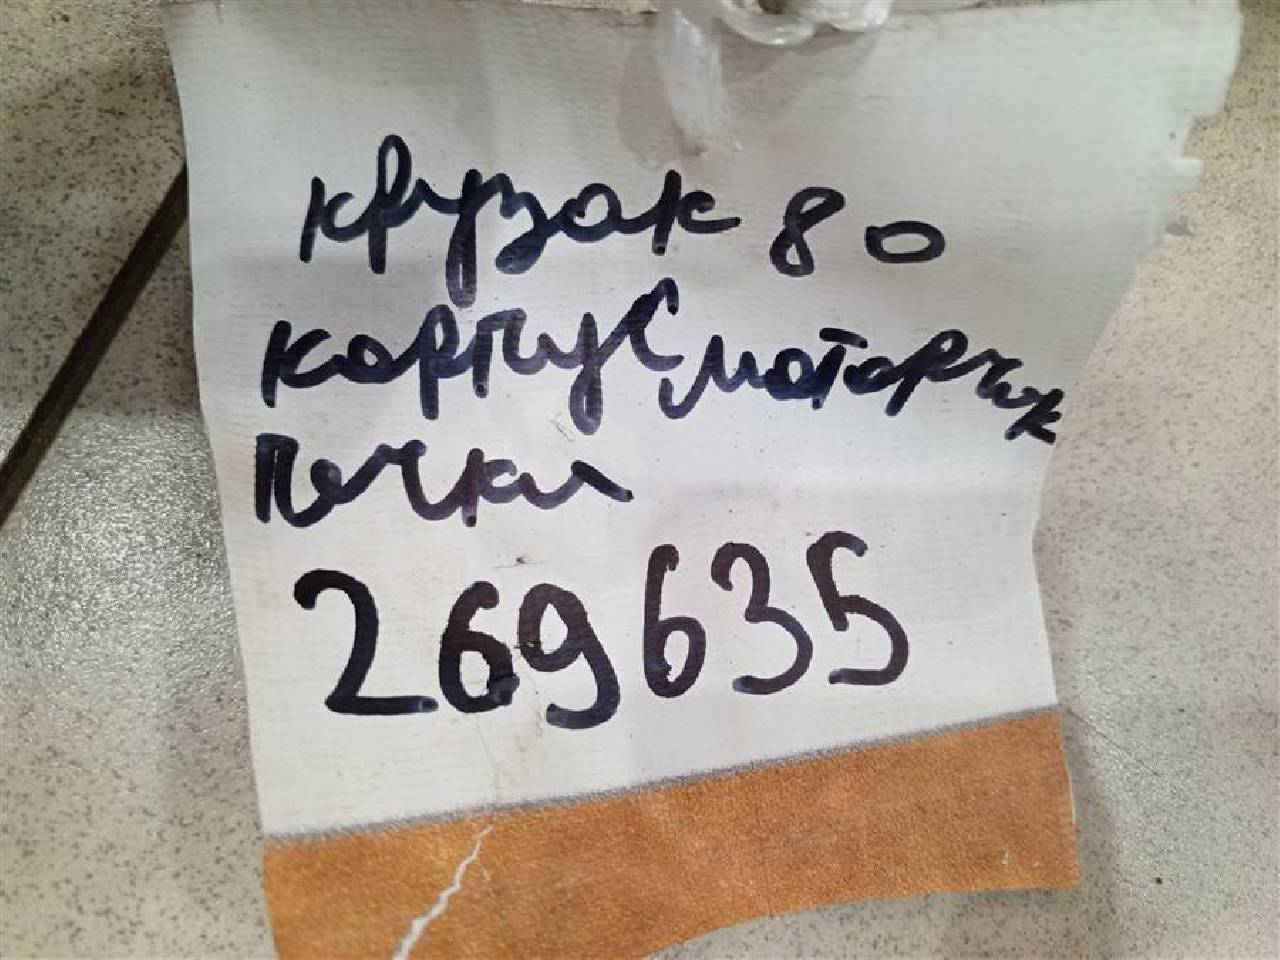 крузак 80
корпус моторчик
печки
269635